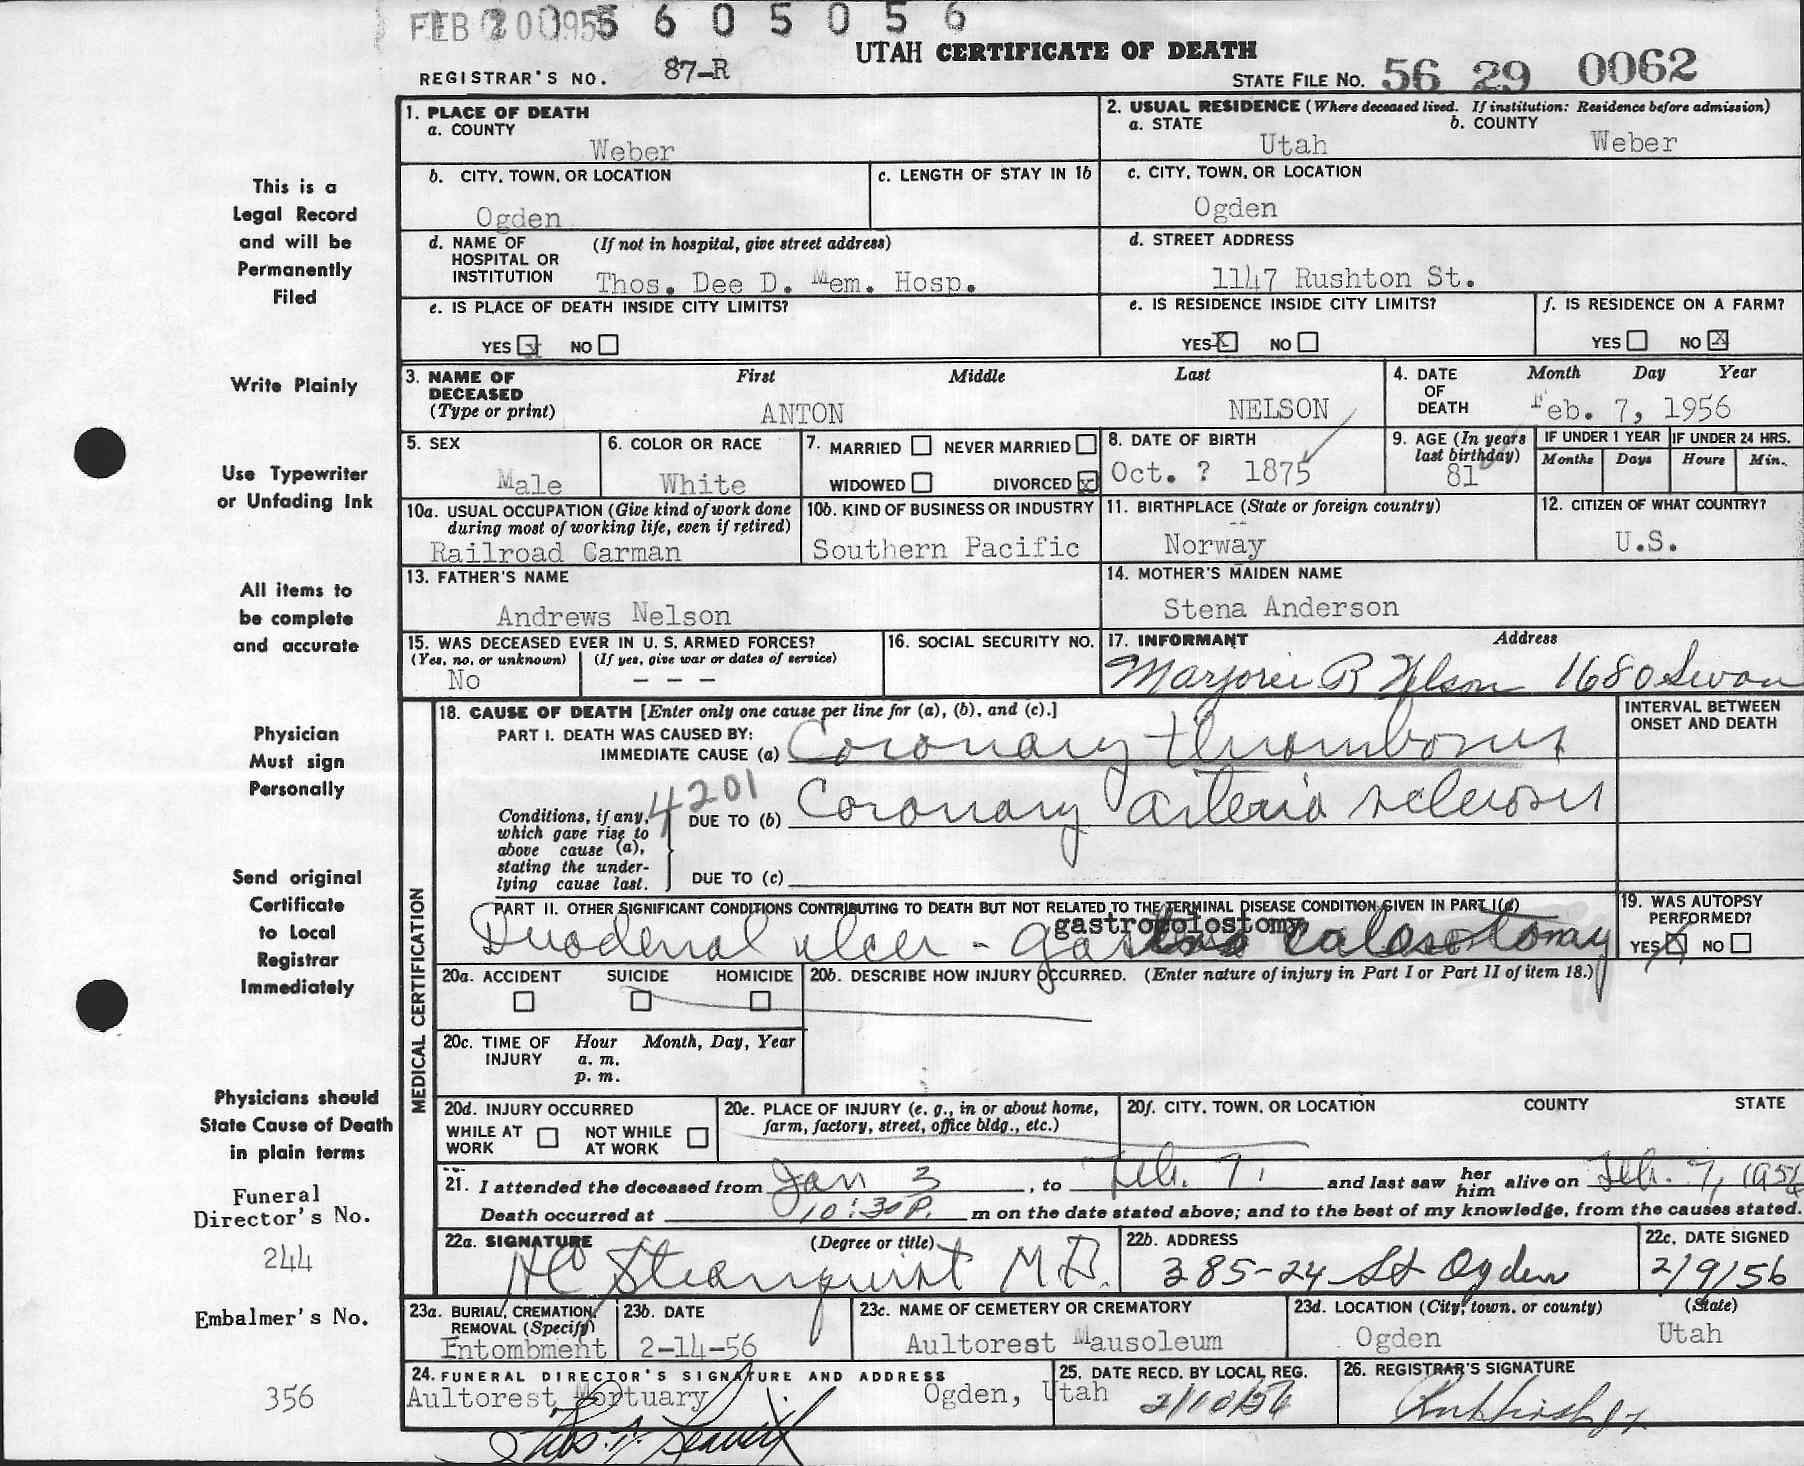 FEB 20 1956 5605056
UTAH CERTIFICATE OF DEATH
REGISTRAR'S NO. 87-R
STATE FILE NO. 56 29 0062
This is a
Legal Record
and will be
Permanently
Filed
Write Plainly
Use Typewriter
or Unfading Ink
All items to
be complete
and accurate
Physician
Must sign
Personally
Send original
Certificate
to Local
Registrar
Immediately
Physicians should
State Cause of Death
in plain terms
Funeral
Director's No.
244
Embalmer's No.
356
1. PLACE OF DEATH
a. COUNTY
Weber
2. USUAL RESIDENCE (Where deceased lived. If institution: Residence before admission)
a. STATE b. COUNTY
Utah Weber
b. CITY, TOWN, OR LOCATION
Ogden
c. LENGTH OF STAY IN 1b
c. CITY, TOWN, OR LOCATION
Ogden
d. NAME OF HOSPITAL OR INSTITUTION (If not in hospital, give street address)
Thos. Dee D. Mem. Hosp.
d. STREET ADDRESS
1147 Rushton St.
e. IS PLACE OF DEATH INSIDE CITY LIMITS?
YES x NO
e. IS RESIDENCE INSIDE CITY LIMITS?
YES x NO
f. IS RESIDENCE ON A FARM?
YES NO x
3. NAME OF DECEASED (Type or print)
First Middle Last
ANTON NELSON
4. DATE OF DEATH
Month Day Year
Feb. 7, 1956
5. SEX
Male
6. COLOR OR RACE
White
7. MARRIED NEVER MARRIED
WIDOWED DIVORCED x
8. DATE OF BIRTH
Oct. ? 1875
9. AGE (In years last birthday)
81
IF UNDER 1 YEAR IF UNDER 24 HRS.
Months Days Hours Min.
10a. USUAL OCCUPATION (Give kind of work done during most of working life, even if retired)
Railroad Carman
10b. KIND OF BUSINESS OR INDUSTRY
Southern Pacific
11. BIRTHPLACE (State or foreign country)
Norway
12. CITIZEN OF WHAT COUNTRY?
U.S.
13. FATHER'S NAME
Andrews Nelson
14. MOTHER'S MAIDEN NAME
Stena Anderson
15. WAS DECEASED EVER IN U. S. ARMED FORCES?
(Yes, no, or unknown) (If yes, give war or dates of service)
No - - -
16. SOCIAL SECURITY NO.
17. INFORMANT Address
Marjorie R Nelson 1680 Swan
MEDICAL CERTIFICATION
18. CAUSE OF DEATH [Enter only one cause per line for (a), (b), and (c).]
INTERVAL BETWEEN ONSET AND DEATH
PART I. DEATH WAS CAUSED BY:
IMMEDIATE CAUSE (a) Coronary thrombosis
4201
Conditions, if any, which gave rise to above cause (a), stating the underlying cause last.
DUE TO (b) Coronary arterio sclerosis
DUE TO (c)
PART II. OTHER SIGNIFICANT CONDITIONS CONTRIBUTING TO DEATH BUT NOT RELATED TO THE TERMINAL DISEASE CONDITION GIVEN IN PART I(a)
gastrocolostomy
Duodenal ulcer - gastro colostomy
19. WAS AUTOPSY PERFORMED?
YES x NO
20a. ACCIDENT SUICIDE HOMICIDE
20b. DESCRIBE HOW INJURY OCCURRED. (Enter nature of injury in Part I or Part II of item 18.)
20c. TIME OF INJURY Hour a. m. p. m. Month, Day, Year
20d. INJURY OCCURRED
WHILE AT WORK NOT WHILE AT WORK
20e. PLACE OF INJURY (e. g., in or about home, farm, factory, street, office bldg., etc.)
20f. CITY, TOWN, OR LOCATION COUNTY STATE
21. I attended the deceased from Jan 3, to Feb. 7, and last saw her him alive on Feb. 7, 1956
Death occurred at 10:30 P. m on the date stated above; and to the best of my knowledge, from the causes stated.
22a. SIGNATURE (Degree or title)
HC Stranquist M.D.
22b. ADDRESS
385-24 St Ogden
22c. DATE SIGNED
2/9/56
23a. BURIAL, CREMATION, REMOVAL (Specify)
Entombment
23b. DATE
2-14-56
23c. NAME OF CEMETERY OR CREMATORY
Aultorest Mausoleum
23d. LOCATION (City, town, or county) (State)
Ogden Utah
24. FUNERAL DIRECTOR'S SIGNATURE AND ADDRESS
Aultorest Mortuary Ogden, Utah
25. DATE RECD. BY LOCAL REG.
2/10/56
26. REGISTRAR'S SIGNATURE